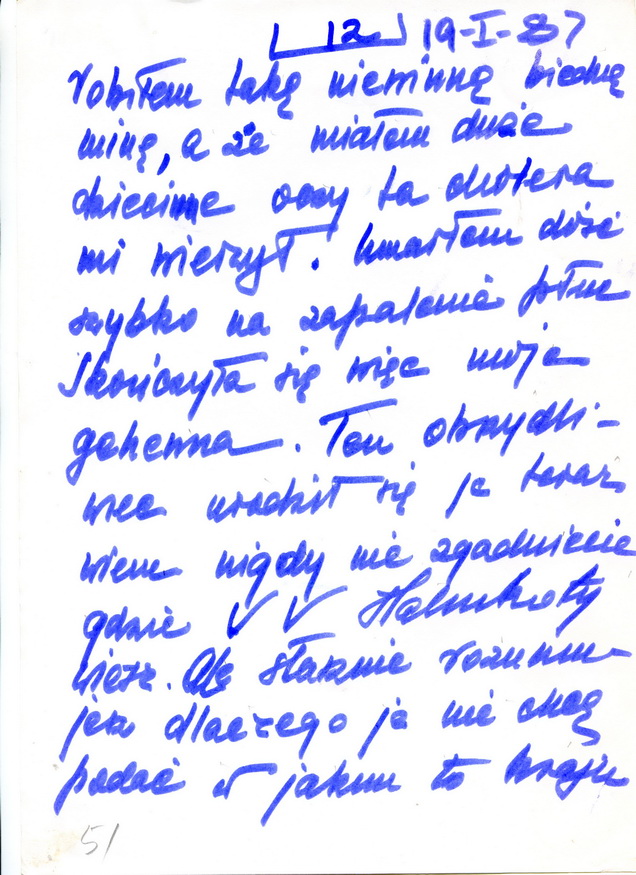 12 19-I-87
robiłem taką niewinną biedną
minę, a że miałem duże
dziecinne oczy ta cholera
mi wierzył. Umarłem dość
szybko na zapalenie płuc
Skończyła się więc moja
gehenna. Ten obrzydli-
wiec urodził się ja teraz
wiem nigdy nie zgadniecie
gdzie Halinko ty
wiesz. Ale słusznie rozumu-
jesz dlaczego ja nie chcę
podać w jakim to kraju
51